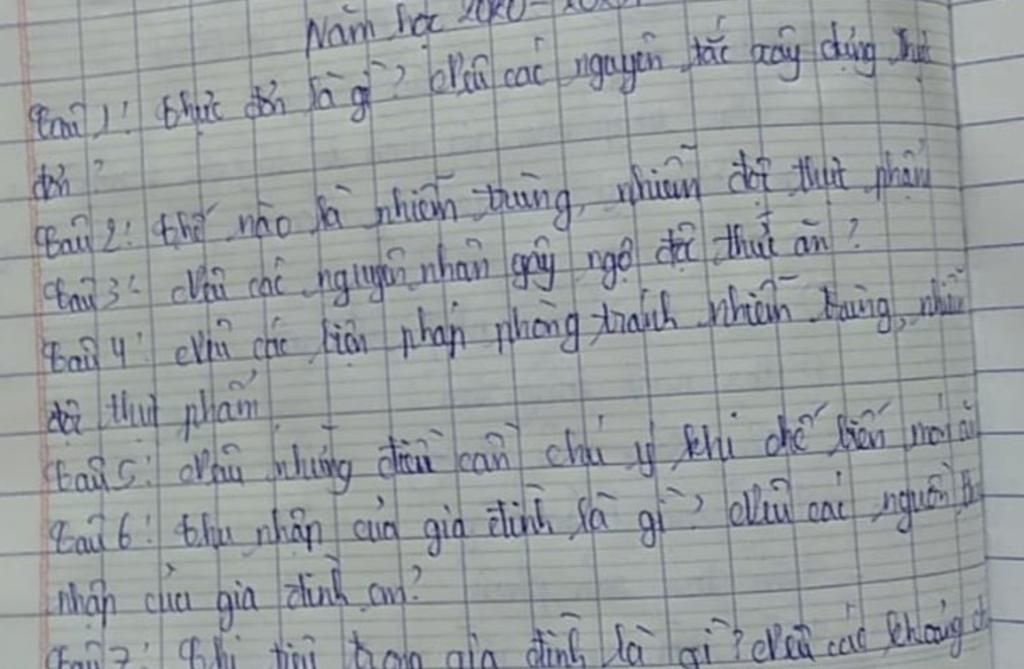 Năm học 2020 - 202
Câu 1: Thực đơn là gì? Nêu các nguyên tắc xây dựng thực
đơn?
Câu 2: Thế nào là nhiễm trùng, nhiễm độc thực phẩm
Câu 3: Nêu các nguyên nhân gây ngộ độc thức ăn?
Câu 4: Nêu các biện pháp phòng tránh nhiễm trùng, nhiễm
độc thực phẩm
Câu 5: Nêu những điều cần chú ý khi chế biến món ăn
Câu 6: Thu nhập của gia đình là gì? Nêu các nguồn thu
nhập của gia đình em?
Câu 7: Chi tiêu trong gia đình là gì? Nêu các khoảng